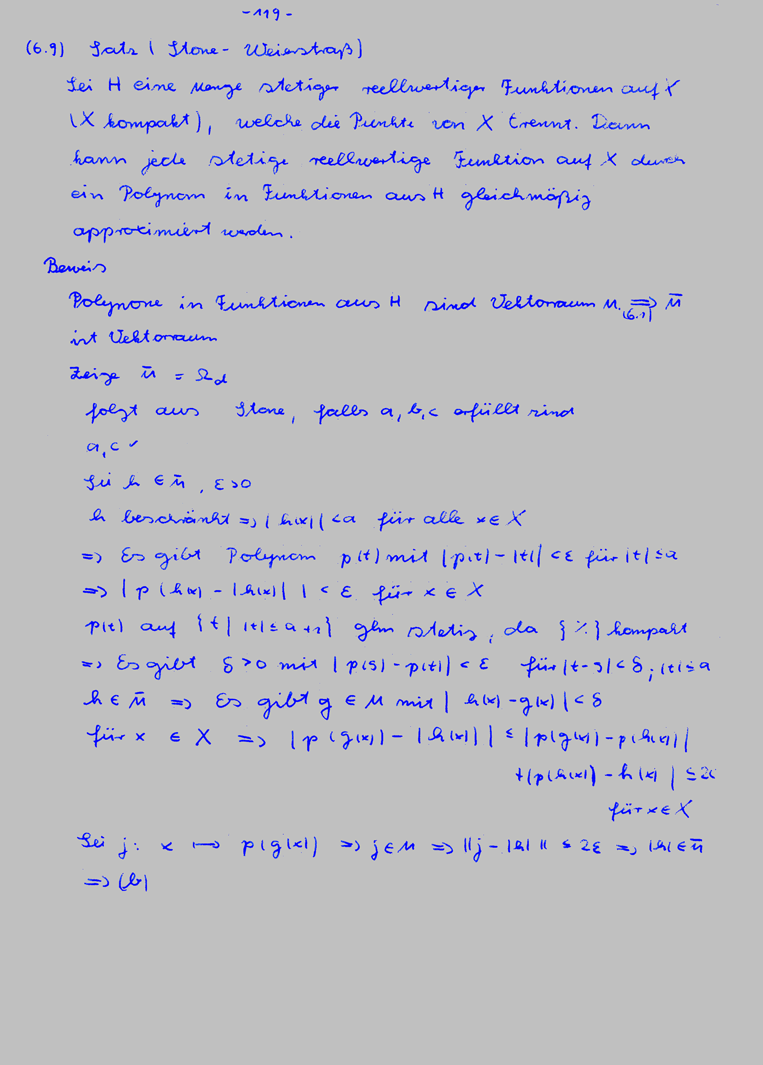 -119-
(6.9) Satz (Stone-Weierstraß)
Sei H eine Menge stetiger reellwertiger Funktionen auf X
(X kompakt), welche die Punkte von X trennt. Dann
kann jede stetige reellwertige Funktion auf X durch
ein Polynom in Funktionen aus H gleichmäßig
approximiert werden.
Beweis
Polynome in Funktionen aus H sind Vektorraum M. ⟹(6.1) M̄
ist Vektorraum
Zeige M̄ = Ω_d
folgt aus Stone, falls a, b, c erfüllt sind
a, c ✓
Sei h ∈ M̄, ε>0
h beschränkt ⇒ |h(x)| < a für alle x ∈ X
⇒ Es gibt Polynom p(t) mit |p(t) - |t|| < ε für |t| ≤ a
⇒ |p(h(x) - |h(x)| | < ε für x ∈ X
p(t) auf {t| |t| ≤ a+1} glm stetig, da {%} kompakt
⇒ Es gibt δ>0 mit |p(s) - p(t)| < ε für |t-s| < δ; |t| ≤ a
h ∈ M̄ ⇒ Es gibt g ∈ M mit |h(x) - g(x)| < δ
für x ∈ X ⇒ |p(g(x)) - |h(x)|| ≤ |p(g(x)) - p(h(x))|
+ |p(h(x)) - h(x)| ≤ 2ε
für x ∈ X
Sei j: x ↦ p(g(x)) ⇒ j ∈ M ⇒ ||j - |h| || ≤ 2ε ⇒ |h| ∈ M̄
⇒ (b)